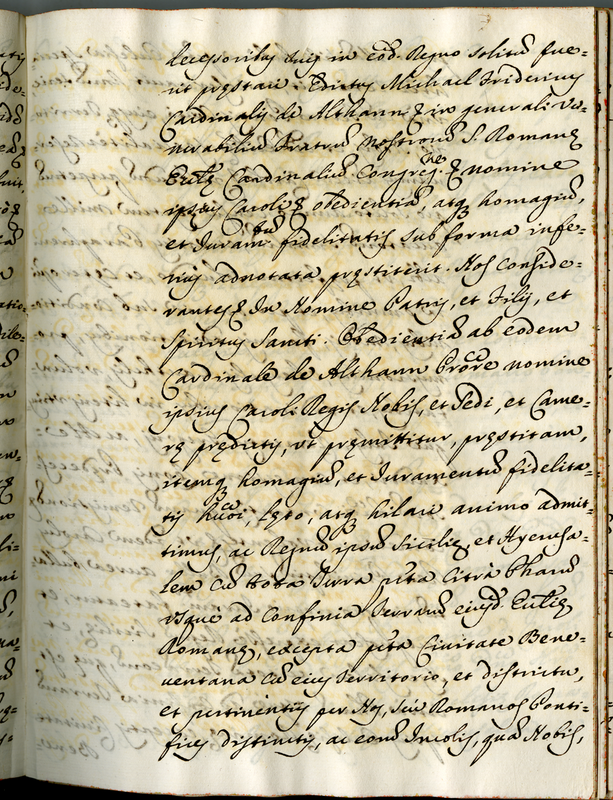 decessoribus suis in eod. Regno solitum fue-
rit prestari. Dictus Michael Fridericus
Cardinalis de Althann & in generali Ve-
nerabilium Fratrum Nostrorum S. Romanę
Ecclię Cardinalium Congreg.ne & nomine
ipsius Caroli & obedientiam, atq homagium,
et Juram.tum fidelitatis sub forma infe-
rius adnotata pręstiterit. Nos conside-
rantes & In Nomine Patris, et Filij, et
Spiritus Sancti. Obedientiam ab eodem
Cardinale de Althann Procre nomine
ipsius Caroli Regis Nobis, et Sedi, et Came-
rę prędictis, ut pręmittitur, pręstitam,
itemq homagium, et Juramentum fidelita-
tis huoi, lęto, atq hilari animo admit-
timus, ac Regnum ipsum Sicilię, et Hyerusa-
lem cum tota Terra pita Citra Pharum
usque ad Confinia Terrarum eiusd. Ecclię
Romanę, excepta pita Civitate Bene-
ventana cum eius Territorio, et districtu,
et pertinentijs per Nos, seu Romanos Ponti-
fices distinctis, ac eorum Incolis, quam Nobis,